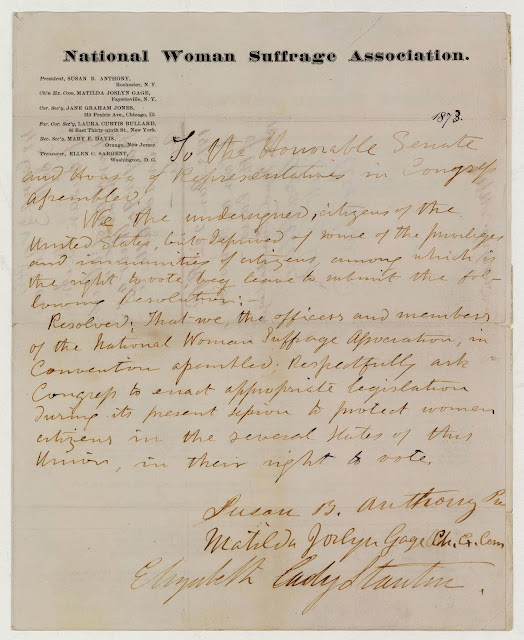 National Woman Suffrage Association.
President, SUSAN B. ANTHONY,
Rochester, N. Y.
Ch'n Ex. Com. MATILDA JOSLYN GAGE,
Fayetteville, N. Y.
Cor. Sec'y, JANE GRAHAM JONES,
Prairie Ave., Chicago, Ill.
For. Cor. Sec'y, LAURA CURTIS BULLARD,
East Thirty-ninth St., New York.
Rec. Sec'y, MARY F. DAVIS,
Orange, New Jersey.
Treasurer, ELLEN C. SARGENT,
Washington, D. C.
1873.
To the Honorable Senate
and House of Representatives in Congress
assembled,
We the undersigned, citizens of the
United States, but deprived of some of the privileges
and immunities of citizens, among which is
the right to vote, beg leave to submit the fol-
lowing Resolution:
Resolved; That we, the officers and members
of the National Woman Suffrage Association, in
Convention assembled; Respectfully ask
Congress to enact appropriate legislation
during its present session to protect women
citizens in the several States of this
Union, in their right to vote.
Susan B. Anthony Pre
Matilda Joslyn Gage Ch. Ex. Com
Elizabeth Cady Stanton